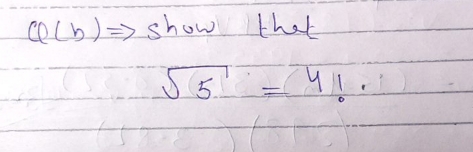 Q(b) => show that
√5 = 4!.